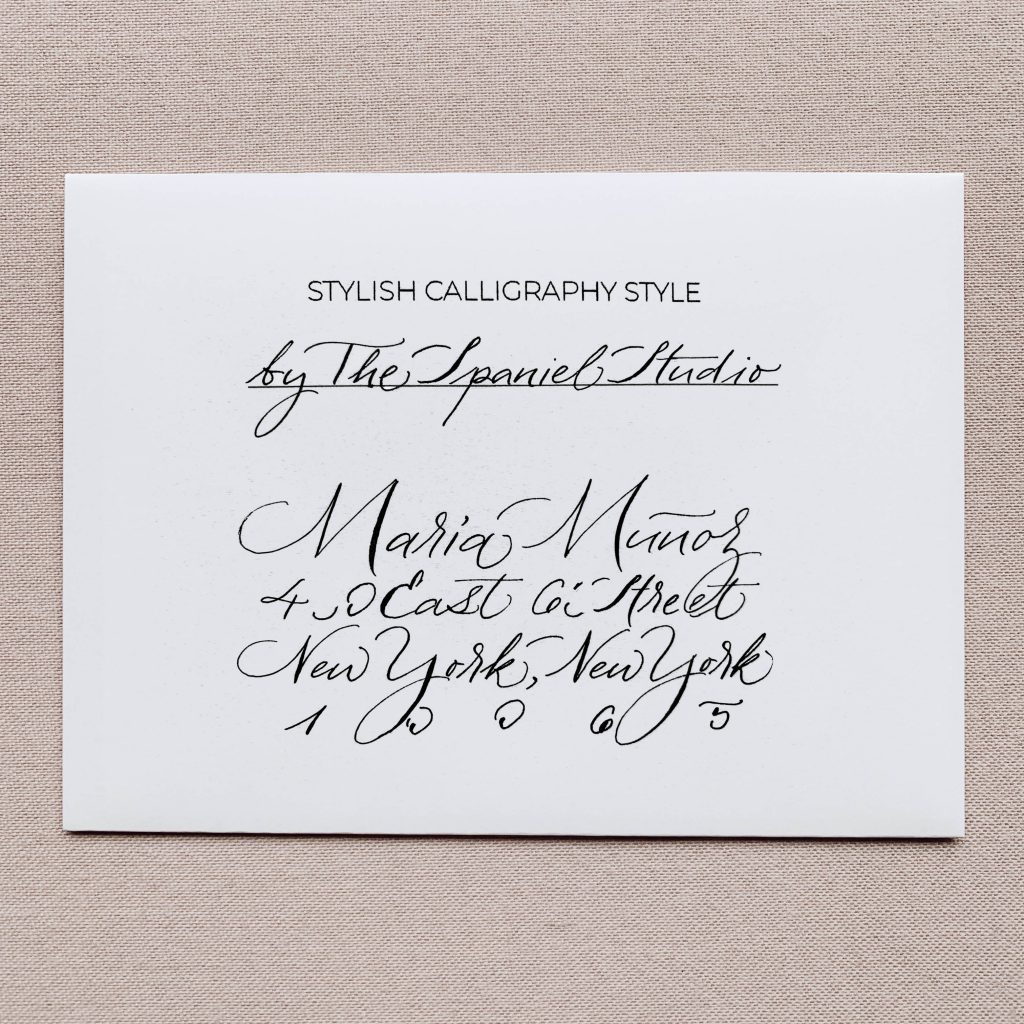 STYLISH CALLIGRAPHY STYLE
by The Spaniel Studio
Maria Muñoz
East Street
New York, New York
1 0 0 6 5